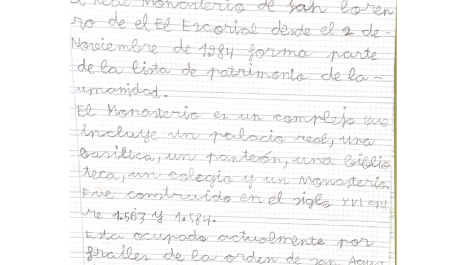 El Real Monasterio de San Loren
zo de el El Escorial desde el 2 de-
Noviembre de 1984 forma parte
de la lista de patrimonio de la-
umanidad.
El Monasterio es un complejo que
incluye un palacio real, una
basilica, un panteón, una biblio
teca, un colegio y un Monasterio.
Fue construido en el siglo XVI ent
re 1.563 y 1.584.
Esta ocupado actualmente por
frailes de la orden de San Agust